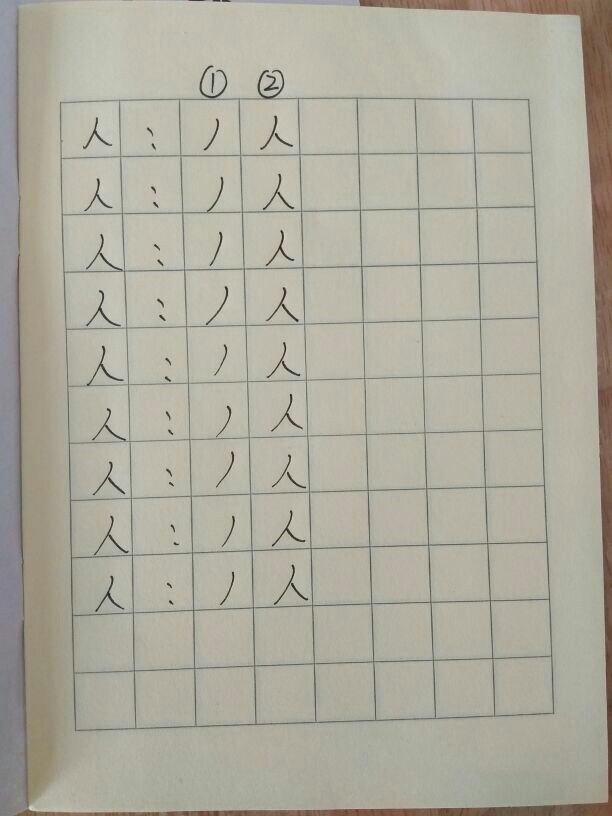 ① ②
人 : 丿 人
人 : 丿 人
人 : 丿 人
人 : 丿 人
人 : 丿 人
人 : 丿 人
人 : 丿 人
人 : 丿 人
人 : 丿 人